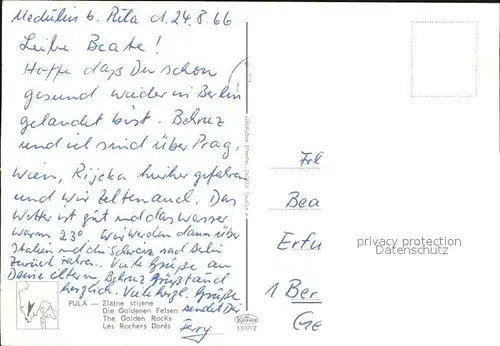 Medulin b. Pula d. 24.8.66
Liebe Beate!
Hoffe dass Du schon
gesund wieder in Berlin
gelandet bist. Behruz
und ich sind über Prag,
Wien, Rijeka hierher gefahren
und wir zelten auch. Das
Wetter ist gut und das Wasser
warm 23° wir werden dann über
Italien und die Schweiz nach Berlin
zurück fahren. Viele Grüße an
Deine Eltern. Behruz Grüßt und
herzlich. Viele herzl. Grüße
sendet Dir
Ferry
PULA — Zlatne stijene
Die Goldenen Felsen
The Golden Rocks
Les Rochers Dorés
1107/2
Frl
Bea
Erfu
1 Ber
Ge
privacy protection
Datenschutz